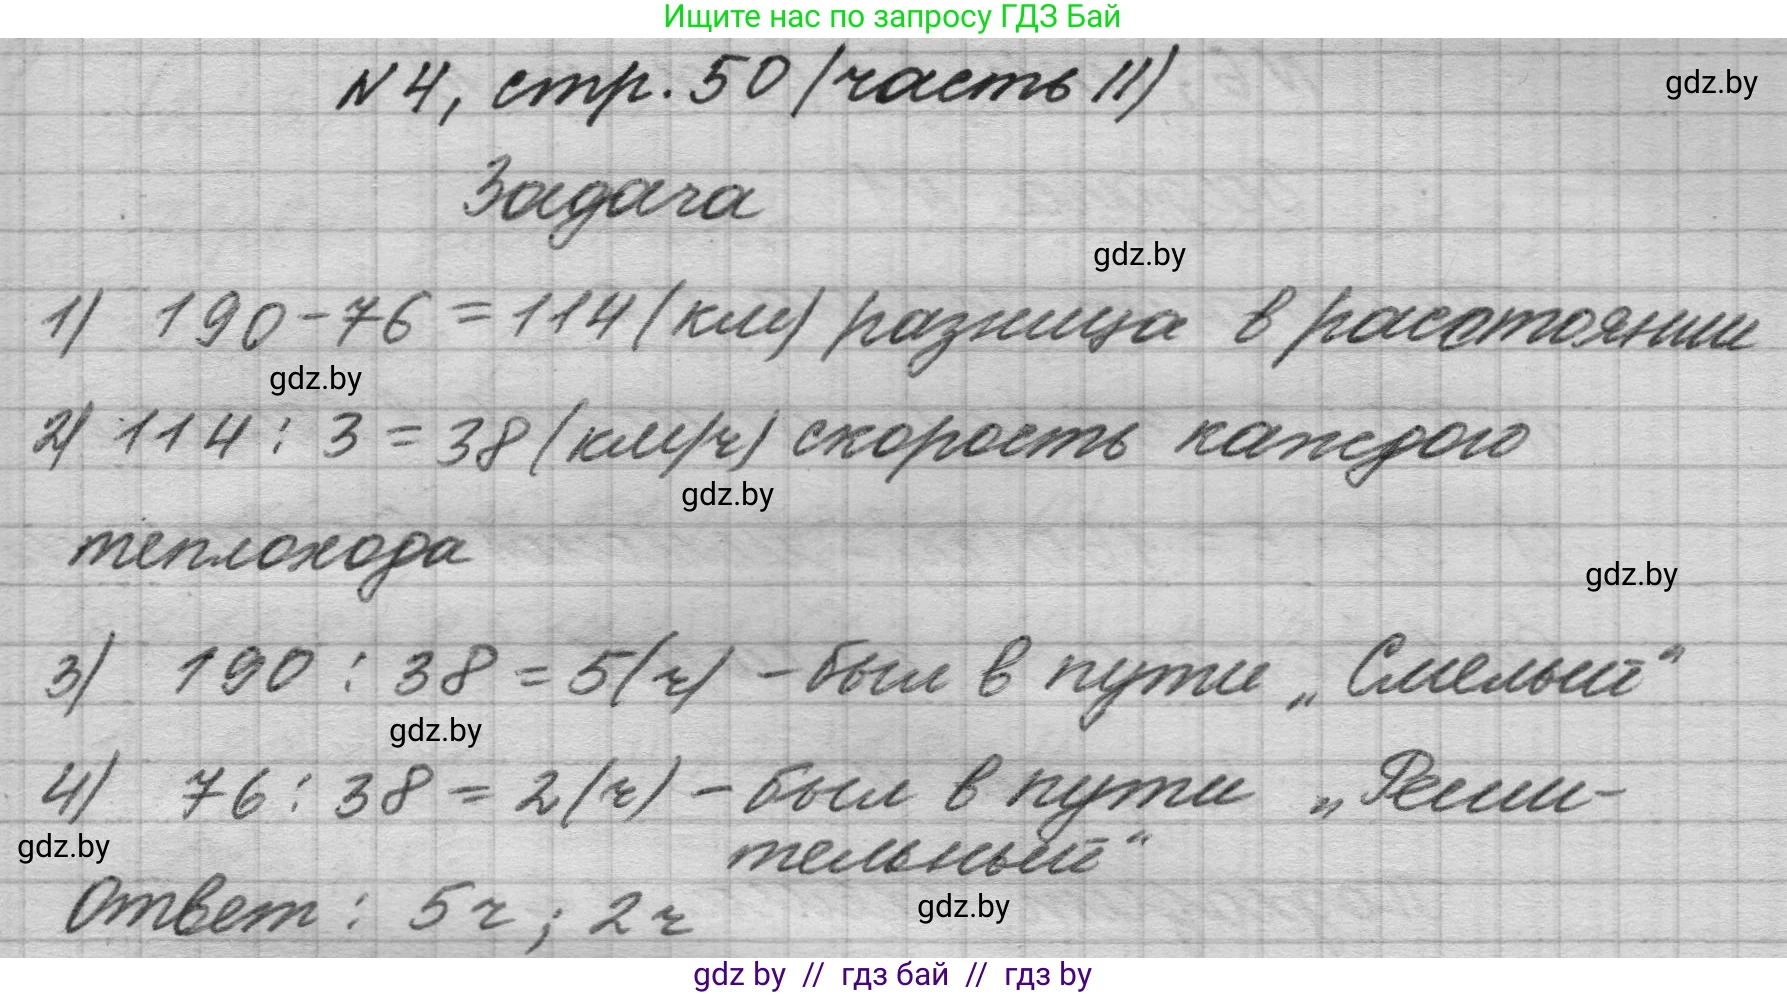 Ищите нас по запросу ГДЗ Бай
N4, стр. 50 (часть II)
gdz.by
Задача
gdz.by
1) 190-76 = 114 (км) разница в расстоянии
gdz.by
2) 114 : 3 = 38 (км/ч) скорость каждого
gdz.by
теплохода
gdz.by
3) 190 : 38 = 5 (ч) - был в пути „Смелый“
gdz.by
4) 76 : 38 = 2 (ч) - был в пути „Реши-
gdz.by
тельный“
Ответ : 5 ч ; 2 ч
gdz.by
gdz by // гдз бай // гдз by